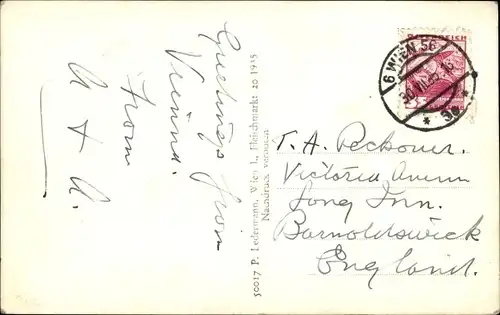 Greetings from
Vienna.
From
A + A.
50017 P. Ledermann, Wien I., Fleischmarkt 20 1935
Nachdruck verboten
ÖSTERREICH
6 WIEN 56
5a
T. A. Peckover.
Victoria Avenue
Song Inn.
Barnoldswick
England.